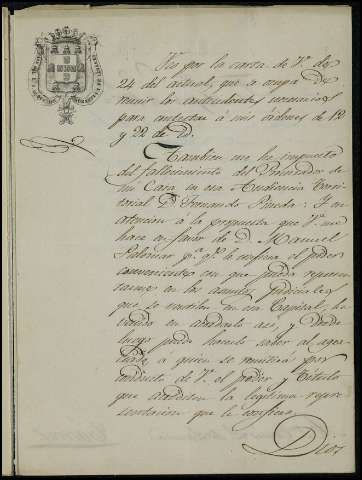 Veo por la carta de V. de
24 del actual, que se ocupa de
reunir los antecedentes necesarios
para contestar á mis órdenes de 12
y 22 de id.
Tambien me he impuesto
del fallecimiento del Procurador de
mi Casa en esa Audiencia Terri-
torial D. Fernando Pineda: Y en
atencion á la propuesta que V. me
hace en favor de D. Manuel
Palomar pª qe le confiera el poder
conveniente con que pueda represen-
tarme en los asuntos judiciales
que se ventilen en esa Capital, he
venido en acordarlo asi, y desde
luego puede hacerlo saber al agra-
ciado á quien se remitirá por
conducto de V. el poder y título
que acrediten la legítima repre-
sentacion que le confiero.
Dios